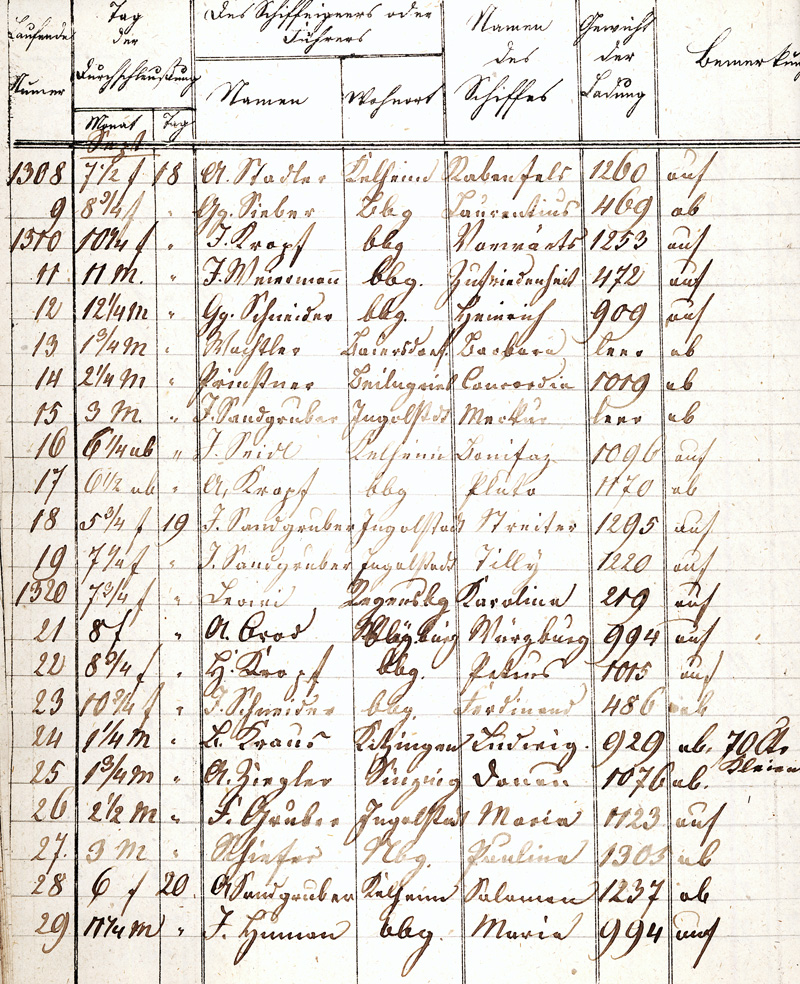 Laufende Numer
Tag der Durchschleußung
Des Schiffeigners oder Führers
Namen des Schiffes
Gewicht der Ladung
Bemerkung
Monat Tag Namen Wohnort
Sept
1308 7 1/2 f 18 A. Stadler Kelheim Rabenfels 1260 auf
9 8 3/4 f " Gg. Sieber Bbg Laurentius 469 ab
1310 10 1/4 f " J. Kropf bbg Vorwärts 1253 auf
11 11 M. " J. Weiermann bbg. Zufriedenheit 472 auf
12 12 1/4 M " Gg. Schneider bbg. Heinrich 909 auf
13 1 3/4 M " Wachtler Baiersdorf Barbara leer ab
14 2 1/4 M " Prinstner Beilngries Concordia 1019 ab
15 3 M. " J. Sandgruber Ingolstadt Merkur leer ab
16 6 1/4 ab " J. Seidl Kelheim Bonifaz 1096 auf
17 6 1/2 ab " A. Kropf bbg Pluto 1170 ab
18 5 3/4 f 19 J. Sandgruber Ingolstadt Streiter 1295 auf
19 7 1/4 f " J. Sandgruber Ingolstadt Tilly 1220 auf
1320 7 3/4 f " Regensbg Karolina 219 auf
21 8 f " A. Würzburg 994 auf
22 8 3/4 f " H. Kropf bbg. Petrus 1015 auf
23 10 3/4 f " J. Schneider bbg. Ferdinand 486 ab
24 1 1/4 M " L. Kraus Kitzingen Ludwig. 929 ab. 70 Ctr
Kleien
25 1 3/4 M " A. Ziegler Sinzing Donau 1076 ab.
26 2 1/2 M " F. Gruber Ingolstadt Maria 1123 auf
27. 3 M " Schiefer Nbg. Paulina 1305 ab
28 6 f 20 A Sandgruber Kelheim Salomon 1237 ab
29 11 1/4 M " J. bbg. Maria 994 auf